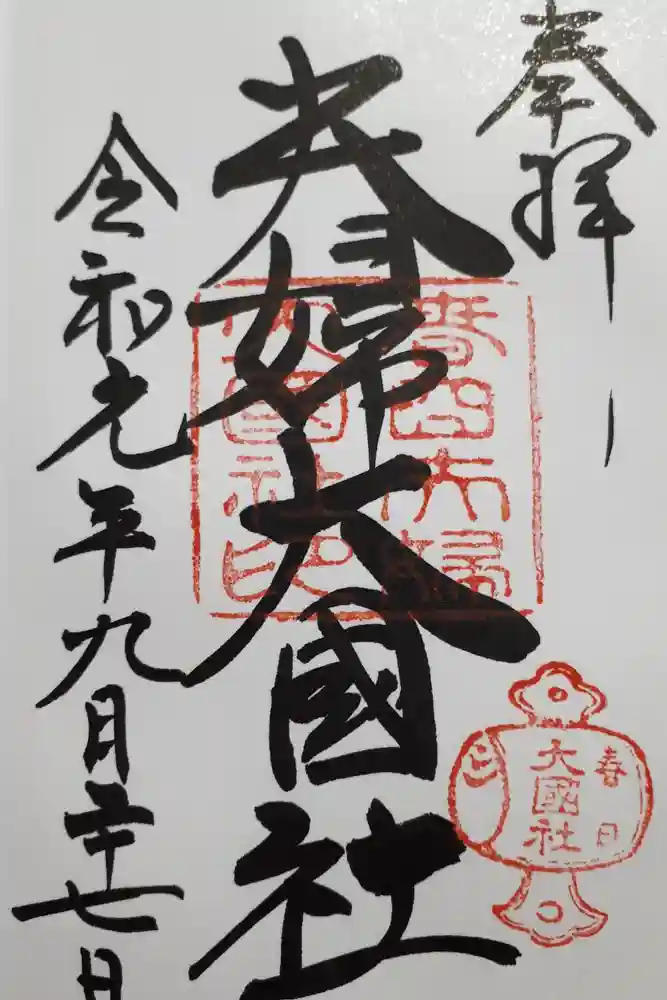 奉拝
夫婦大國社
令和元年九月二十七日
春日夫婦
大國社印
春日
大國社